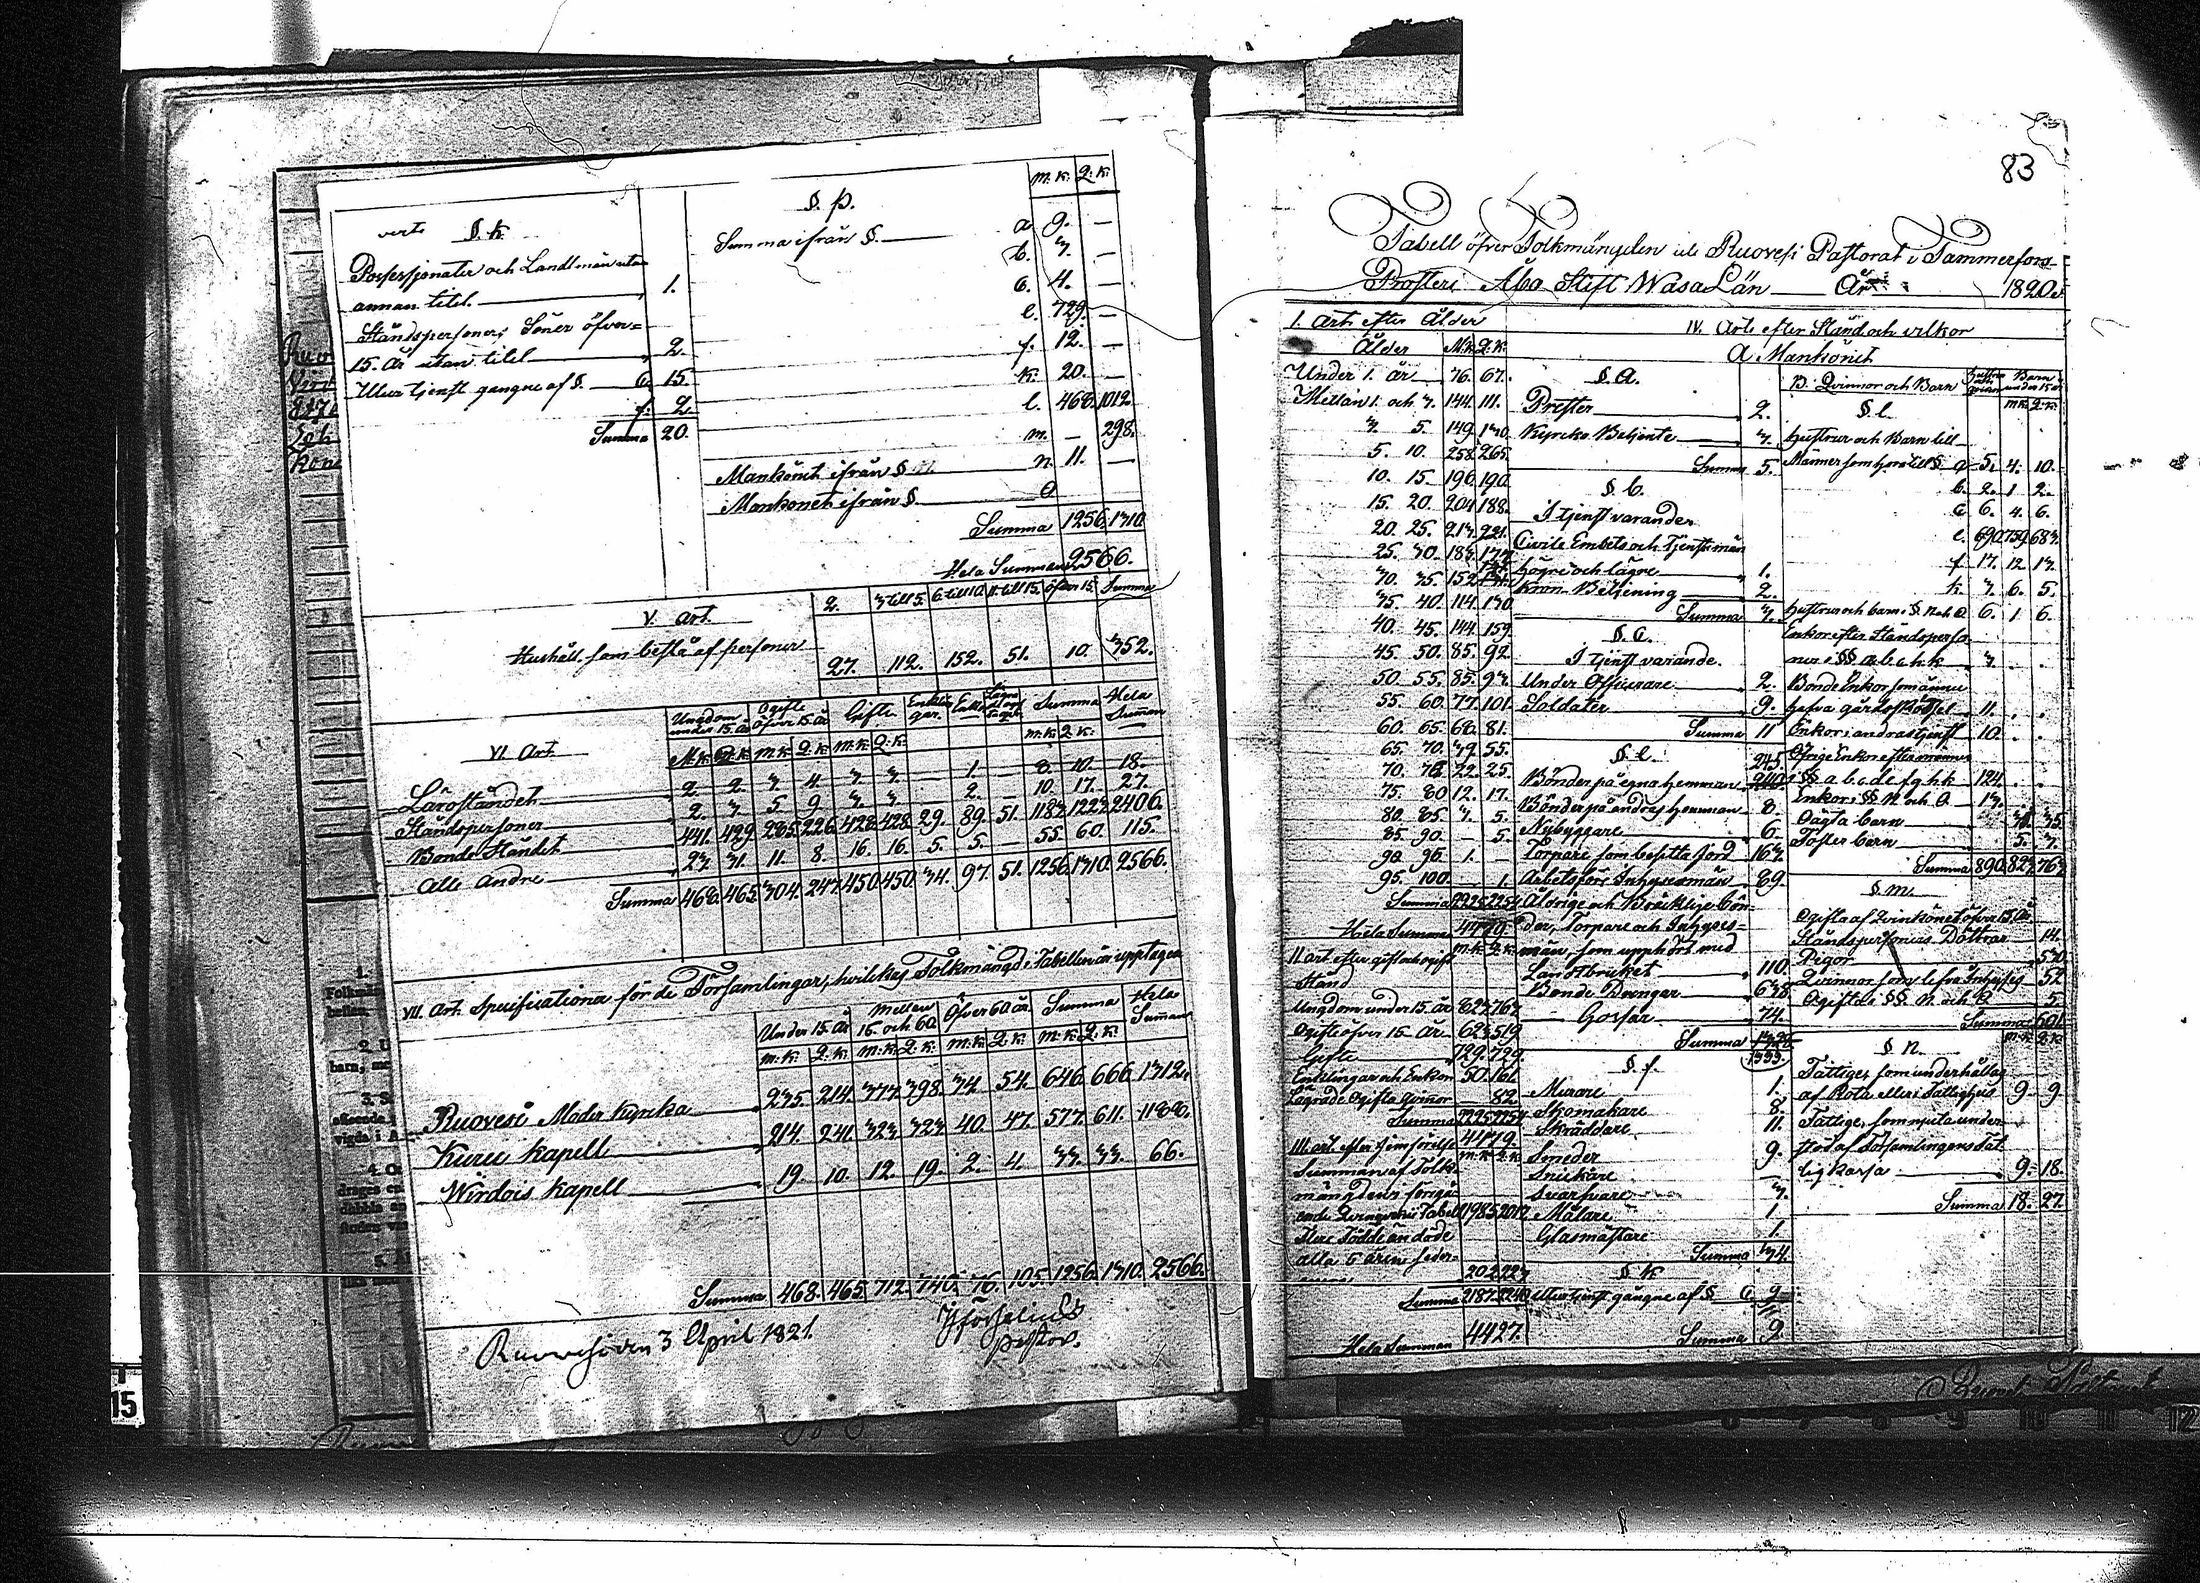 m.k. Q.k.
verte §. k.
Possessjonater och Landtmän utan
annan titel 1.
Ståndspersoners Söner öfver
15. År utan titel 2.
Utur tjenst gangne af §. C. 15.
f. 2.
Summa 20.
§. p.
Summa ifrån §. a 9. —
b. 3. —
c. 4. —
e. 729. —
f. 12. —
k. 20. —
l. 468. 1012.
m. — 298.
Mankönet ifrån § n. 11. —
Mankönet ifrån § O
Summa 1256. 1310
Hela Summan 2566.
V. Art. 2. 3 till 5. 6 till 10. 11 till 15. öfver 15. Summa
Hushåll som bestå af personer 27. 112. 152. 51. 10. 352.
VI. Art. Ungdom under 15. år Ogifte öfver 15. år Gifte Enklingar Enkor Summa Hela Summan
M.k. Q.k. m.k. Q.k. m.k. Q.k. m.k. Q.k.
Läroståndet 2. 2. 3. 4. 3. 3. — 1. — 8. 10. 18.
Ståndspersoner 2. 3. 5. 9. 3. 3. — 2. — 10. 17. 27.
Bonde Ståndet 441. 429. 285. 226. 428. 428. 29. 89. 51. 1183. 1223. 2406.
Alla Andre 23. 31. 11. 8. 16. 16. 5. 5. — 55. 60. 115.
Summa 468. 465. 304. 247. 450. 450. 34. 97. 51. 1256. 1310. 2566.
VII. Art. Specificationa för de Församlingar, hvilkas Folkmängd i Tabellen är upptagen
Under 15 år mellan 15 och 60. Öfver 60 år Summa Hela Suman
m.k. Q.k. m.k. Q.k. m.k. Q.k. m.k. Q.k.
Ruovesi Moder Kyrcka 235. 214. 377. 398. 34. 54. 646. 666. 1312.
Kuru Kapell 214. 241. 323. 323. 40. 47. 577. 611. 1188.
Wirdois Kapell 19. 10. 12. 19. 2. 4. 33. 33. 66.
Summa 468. 465. 712. 740. 76. 105. 1256. 1310. 2566.
Ruovesi den 3 April 1821.
pastor.
83
Tabell öfver Folkmängden uti Ruovesi Pastorat i Tammerfors
Prosteri Åbo Stift Wasa Län År 1820
I. Art. efter Ålder
Ålder M.k. Q.k.
Under 1. år 76. 67.
Mellan 1. och 3. 144. 111.
3. 5. 149. 130.
5. 10. 258. 265.
10. 15. 196. 190.
15. 20. 204. 188.
20. 25. 213. 221.
25. 30. 183.
30. 35. 152.
35. 40. 114. 130.
40. 45. 144. 159.
45. 50. 85. 92.
50. 55. 85. 93.
55. 60. 77. 101.
60. 65. 68. 81.
65. 70. 39. 55.
70. 75. 22. 25.
75. 80 12. 17.
80. 85 3. 5.
85. 90. — 5.
90. 95. 1. —
95. 100. — 1.
Summa 2225. 2254.
Hela Summa 4479.
II art. efter gift och ogift m.k. Q.k.
Stånd
Ungdom under 15. år 823. 763.
Ogifte öfver 15. år 623. 519.
Gifte 729. 729.
Enklingar och Enkor 50. 161.
Lägrade Ogifta Qvinor — 82.
Summa 2225. 2254.
4479.
III art. efter jemförelse m.k. Q.k.
Summan af Folk-
mängden i föregå-
ende Tabell 1985. 2017.
Flere Födde än döde
alla 5 åren
202. 223.
Summa 2187. 2240.
Hela Summan 4427.
IV. Art. efter Stånd och vilkor
A Mankönet
§. a.
Prester 2.
Kyrcko Betjente 3.
Summa 5.
§. b.
I tjenst varander
Civile Embets och Tjenstemän
högre och lägre 1.
Kron Betjening 2.
Summa 3.
§. c.
I tjenst varande.
Under Officerare 2.
Soldater 9.
Summa 11
§. e.
245.
Bönder på egna hemman 240.
Bönder på andras hemman 8.
Nybyggare 6.
Torpare som besitta jord 163.
Arbetsföre Inhysesmän 89.
Åldrige och Bräcklige Bön-
der, Torpare och Inhyses-
män, som upphört med
Landtbruket 110.
Bonde Drengar 638.
Gossar 74.
Summa 1328
1333.
§. f.
Murare 1.
Skomakare 8.
Skräddare 11.
Smeder 9.
Snickare
Svarfvare 3.
Målare 1.
Glasmästare 1.
Summa 34.
§. k.
Utur tjenst gangne af §. C. 9
Summa 9.
B. Qvinnor och Barn Hustrur och Enkor Barn under 15 år
§ l. m.k. Q.k.
Hustrur och Barn till
Männer som höra till §. a 5. 4. 10.
b. 2. 1. 2.
c 6. 4. 6.
e. 690. 759. 683.
f. 17. 12. 13.
k. 3. 6. 5.
Hustrur och barn i §. n och O. 6. 1. 6.
Enkor efter Ståndsperso-
ner i §§ a. b. c. h. k. 3. . .
Bonde Enkor som ännu
hafva gårdsskötsel 11. . .
Enkor i andras tjenst 10. . .
Öfrige Enkor efter männer
i §§ a. b. c. d. e. f. g. h. k. 124. . .
Enkor i §§ n och O. 13.
Oägta barn 31. 35.
Foster barn 5. 3.
Summa 890. 823. 763.
§. m.
Ogifta af Qvinkönet öfver 15. år
Ståndspersoners Döttrar 14.
Pigor 530.
Qvinnor som lefva Inhyses 52
Ogifta i §§. n och O. 5.
Summa 601.
§ n. m.k. Q.k.
Fattige, som underhållas
af Rota eller i Fattighus 9. 9.
Fattige, som njuta under-
stöd af Församlingens Fat-
tig Kassa 9. 18.
Summa 18. 27.
15